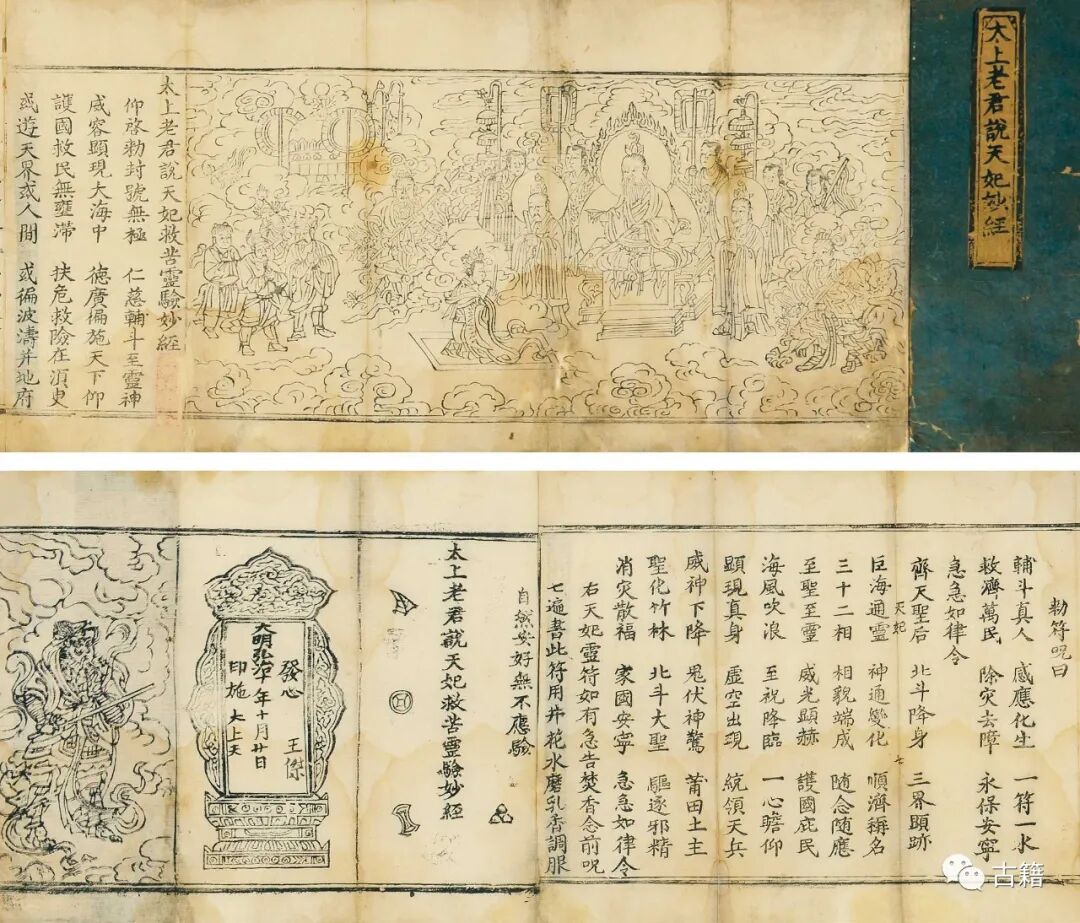 太上老君說天妃妙經
太上老君說天妃救苦靈驗妙經
仰啓勑封號無極 仁慈輔斗至靈神
威容顯現大海中 德廣徧施天下仰
護國救民無壅滯 扶危救險在須臾
或遊天界或人間 或徧波濤并地府
勑符呪曰
輔斗真人 感應化生 一符一水
救濟萬民 除灾去障 永保安寧
急急如律令
天妃
齊天聖后 北斗降身 三界顯跡
巨海通靈 神通變化 順濟稱名
三十二相 相貌端成 隨念隨應
至聖至靈 威光顯赫 護國庇民
海風吹浪 至祝降臨 一心瞻仰
顯現真身 虛空出現 統領天兵
威神下降 鬼伏神驚 莆田土主
聖化竹林 北斗大聖 驅逐邪精
消灾散福 家國安寧 急急如律令
右天妃靈符如有急告焚香念前呪
七遍書此符用井花水磨乳香調服
自然安好無不應驗
太上老君說天妃救苦靈驗妙經
發心 王傑
年十月廿日
印施
古籍